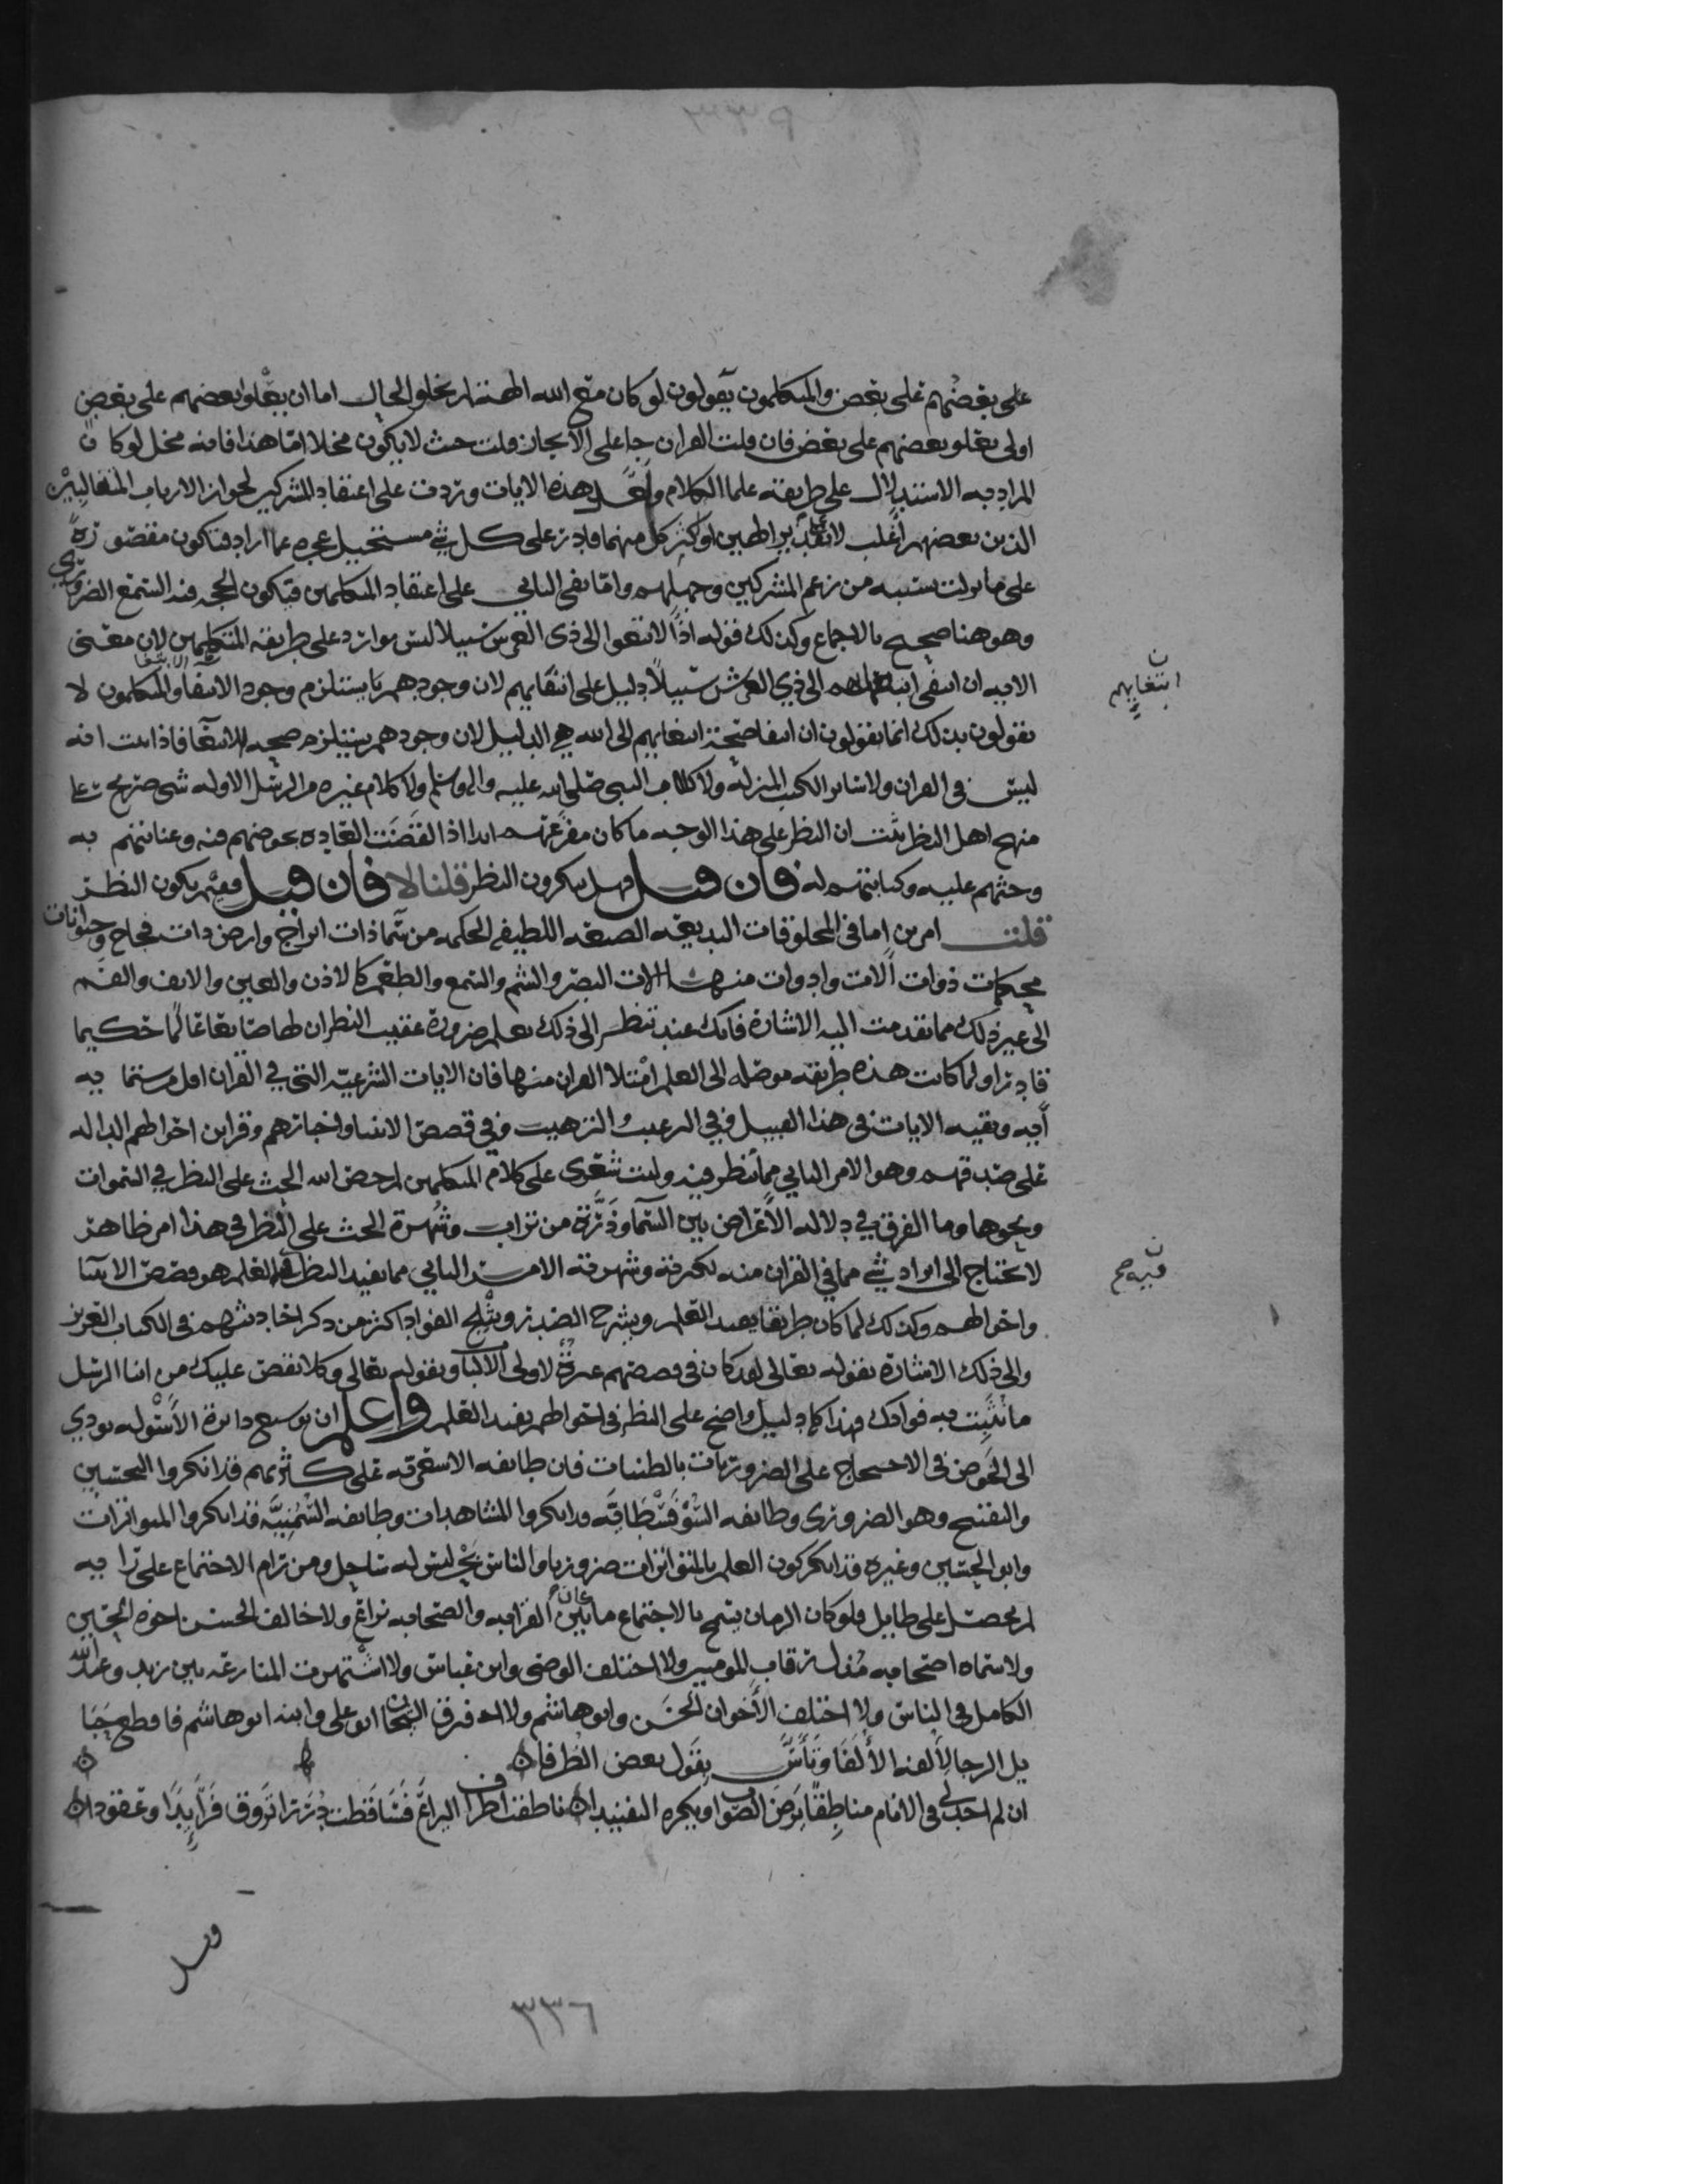 على بعضهم على بعض والمتكلمون يقولون لو كان مع الله الها لم يخلو الحال اما ان يعلوا بعضهم على بعض
اولى يعلو بعضهم على بعض فان قلت القران جا على الايجاز قلت حيث لا يكون مخلا اما هذا فانه مخل لو كان
المراد به الاستدلال على طريقه علما الكلام ولعل هذه الايات وردت على اعتقاد المشركين لجواز الارباب المتغالبين
الذين بعضهم اغلب لا تقدير الهين او اكثر كل منهما قادر على كل شي مستحيل عجزه عما اراد فتكون مقصورة
على ما تولت بسببه من زعم المشركين وجهلهم واما نفي الثاني على اعتقاد المتكلمين فتكون الحجه فيه السمع الضروري
وهو هنا صحيح بالاجماع وكذلك قوله اذًا لابتغوا الى ذي العرش سبيلا ليس بوارد على طريقه المتكلمين لان معنى
الايه ان انتفى ابتغاهم الى ذي العرش سبيلًا دليل على انتفايهم لان وجودهم يستلزم وجود الابتغا والمتكلمون لا
ابتغايهم
يقولون بذلك انما يقولون ان انتفا صحة ابتغايهم الى الله هي الدليل لان وجودهم يستلزم صحه الابتغا فاذا ثبت انه
ليس في القران ولا سائر الكتب المنزله ولا كلام النبي صلى الله عليه واله وسلم ولا كلام غيره من الرسل الاوله شي صريح على
منهج اهل النظر ثبت ان النظر على هذا الوجه ما كان مفزعهم ابدا اذا لقضت العاده بخوضهم فيه وعنايتهم به
وحثهم عليه وكتابتهم له فان قيل فهل ينكرون النظر قلنا لا فان قيل ففيم يكون النظر
قلت امرين اما في المخلوقات البديعه الصنعه اللطيفه الحكمه من سما ذات ابراج وارض ذات فجاج وحيوانات
محكمات ذوات الات وادوات منها الات البصر والشم والسمع والطعم كالاذن والعين والانف والفم
الى غير ذلك مما تقدمت اليه الاشارة فانك عند تنظر الى ذلك تعلم ضرورة عقيب النظر ان لها صانعا عالما حكيما
قادرا ولما كانت هذه طريقه موصله الى العلم امتلا القران منها فان الايات الشرعيه التي في القران اقل من ستمايه
ايه وبقيه الايات في هذا القبيل وفي الترغيب والترهيب وفي قصص الانبيا واخبارهم وقراين احوالهم الداله
على صدقهم وهو الامر الثاني مما ينظر فيه وليت شعري على كلام المتكلمين لم خص الله الحث على النظر في السموات
ونحوها وما الفرق في دلاله الاعراض بين السما وذرة من تراب وشهرة الحث على النظر في هذا امر ظاهر
لا يحتاج الى ايراد شي مما في القران منه لكثرته وشهرته الامر الثاني مما يفيد النظر العلم هو قصص الانبيا
فيه صح
واحوالهم وكذلك لما كان طريقا يفيد العلم ويشرح الصدر ويثلج الفواد اكثر من ذكر اخباره شهم في الكتاب العزيز
والى ذلك الاشارة بقوله تعالى لقد كان في قصصهم عبرة لاولي الالباب وبقوله تعالى وكلا نقص عليك من انبا الرسل
ما نثبت به فوادك فهذا كله دليل واضح على النظر في احوالهم يفيد العلم واعلم ان توسيع دائرة الاسئوله يودي
الى الخوض في الاحتجاج على الضروريات بالظنيات فان طايفه الاشعريه على كثرتهم قد انكروا التحسين
والتقبيح وهو الضروري وطايفه السوفسطاقيه قد انكروا المشاهدات وطايفه السمنيه قد انكروا المتواترات
وابو الحسين وغيره قد انكر كون العلم بالمتواترات ضروريا والناس بحر ليس له ساحل ومن رام الاجتماع على رايه
لم يحصل على طايل فلو كان الزمان يسمح بالاجتماع ما كان بين القرابه والصحابه نزاع ولا خالف الحسن اخوه الحسين
ولا سماه اصحابه مذل رقاب المومنين ولا اختلف الوصي وابن عباس ولا اشتهرت المنازعه بين زيد وعبد الله
الكامل في الناس ولا اختلف الاخوان الحسن وابو هاشم ولا افترق الشيخان ابو علي وابنه ابو هاشم فاقطع حبا
يل الرجا لالفه الالفا وتأس بقول بعض الظرفا
ان لم اجد لي في الانام مناطقا يرضى الصواب ويكره التفنيدا ناطقت اطراف اليراع فتساقطت دررا تروق فرايدا وعقودا
وقيل
٣٣٦